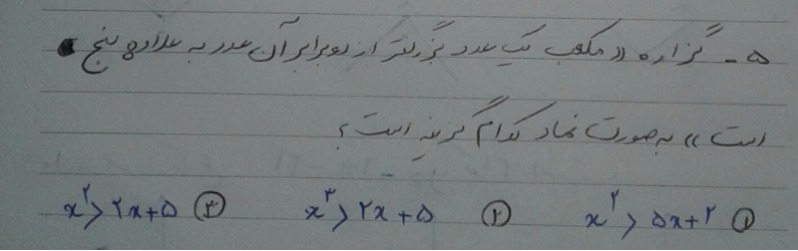 ۵ - گزاره « مکعب یک عدد بزرگتر از دو برابر آن عدد به علاوه پنج
است » به صورت نماد کدام گزینه است ؟
① x² > ۵x+۲ ② x³ > ۲x+۵ ③ x² > ۲x+۵